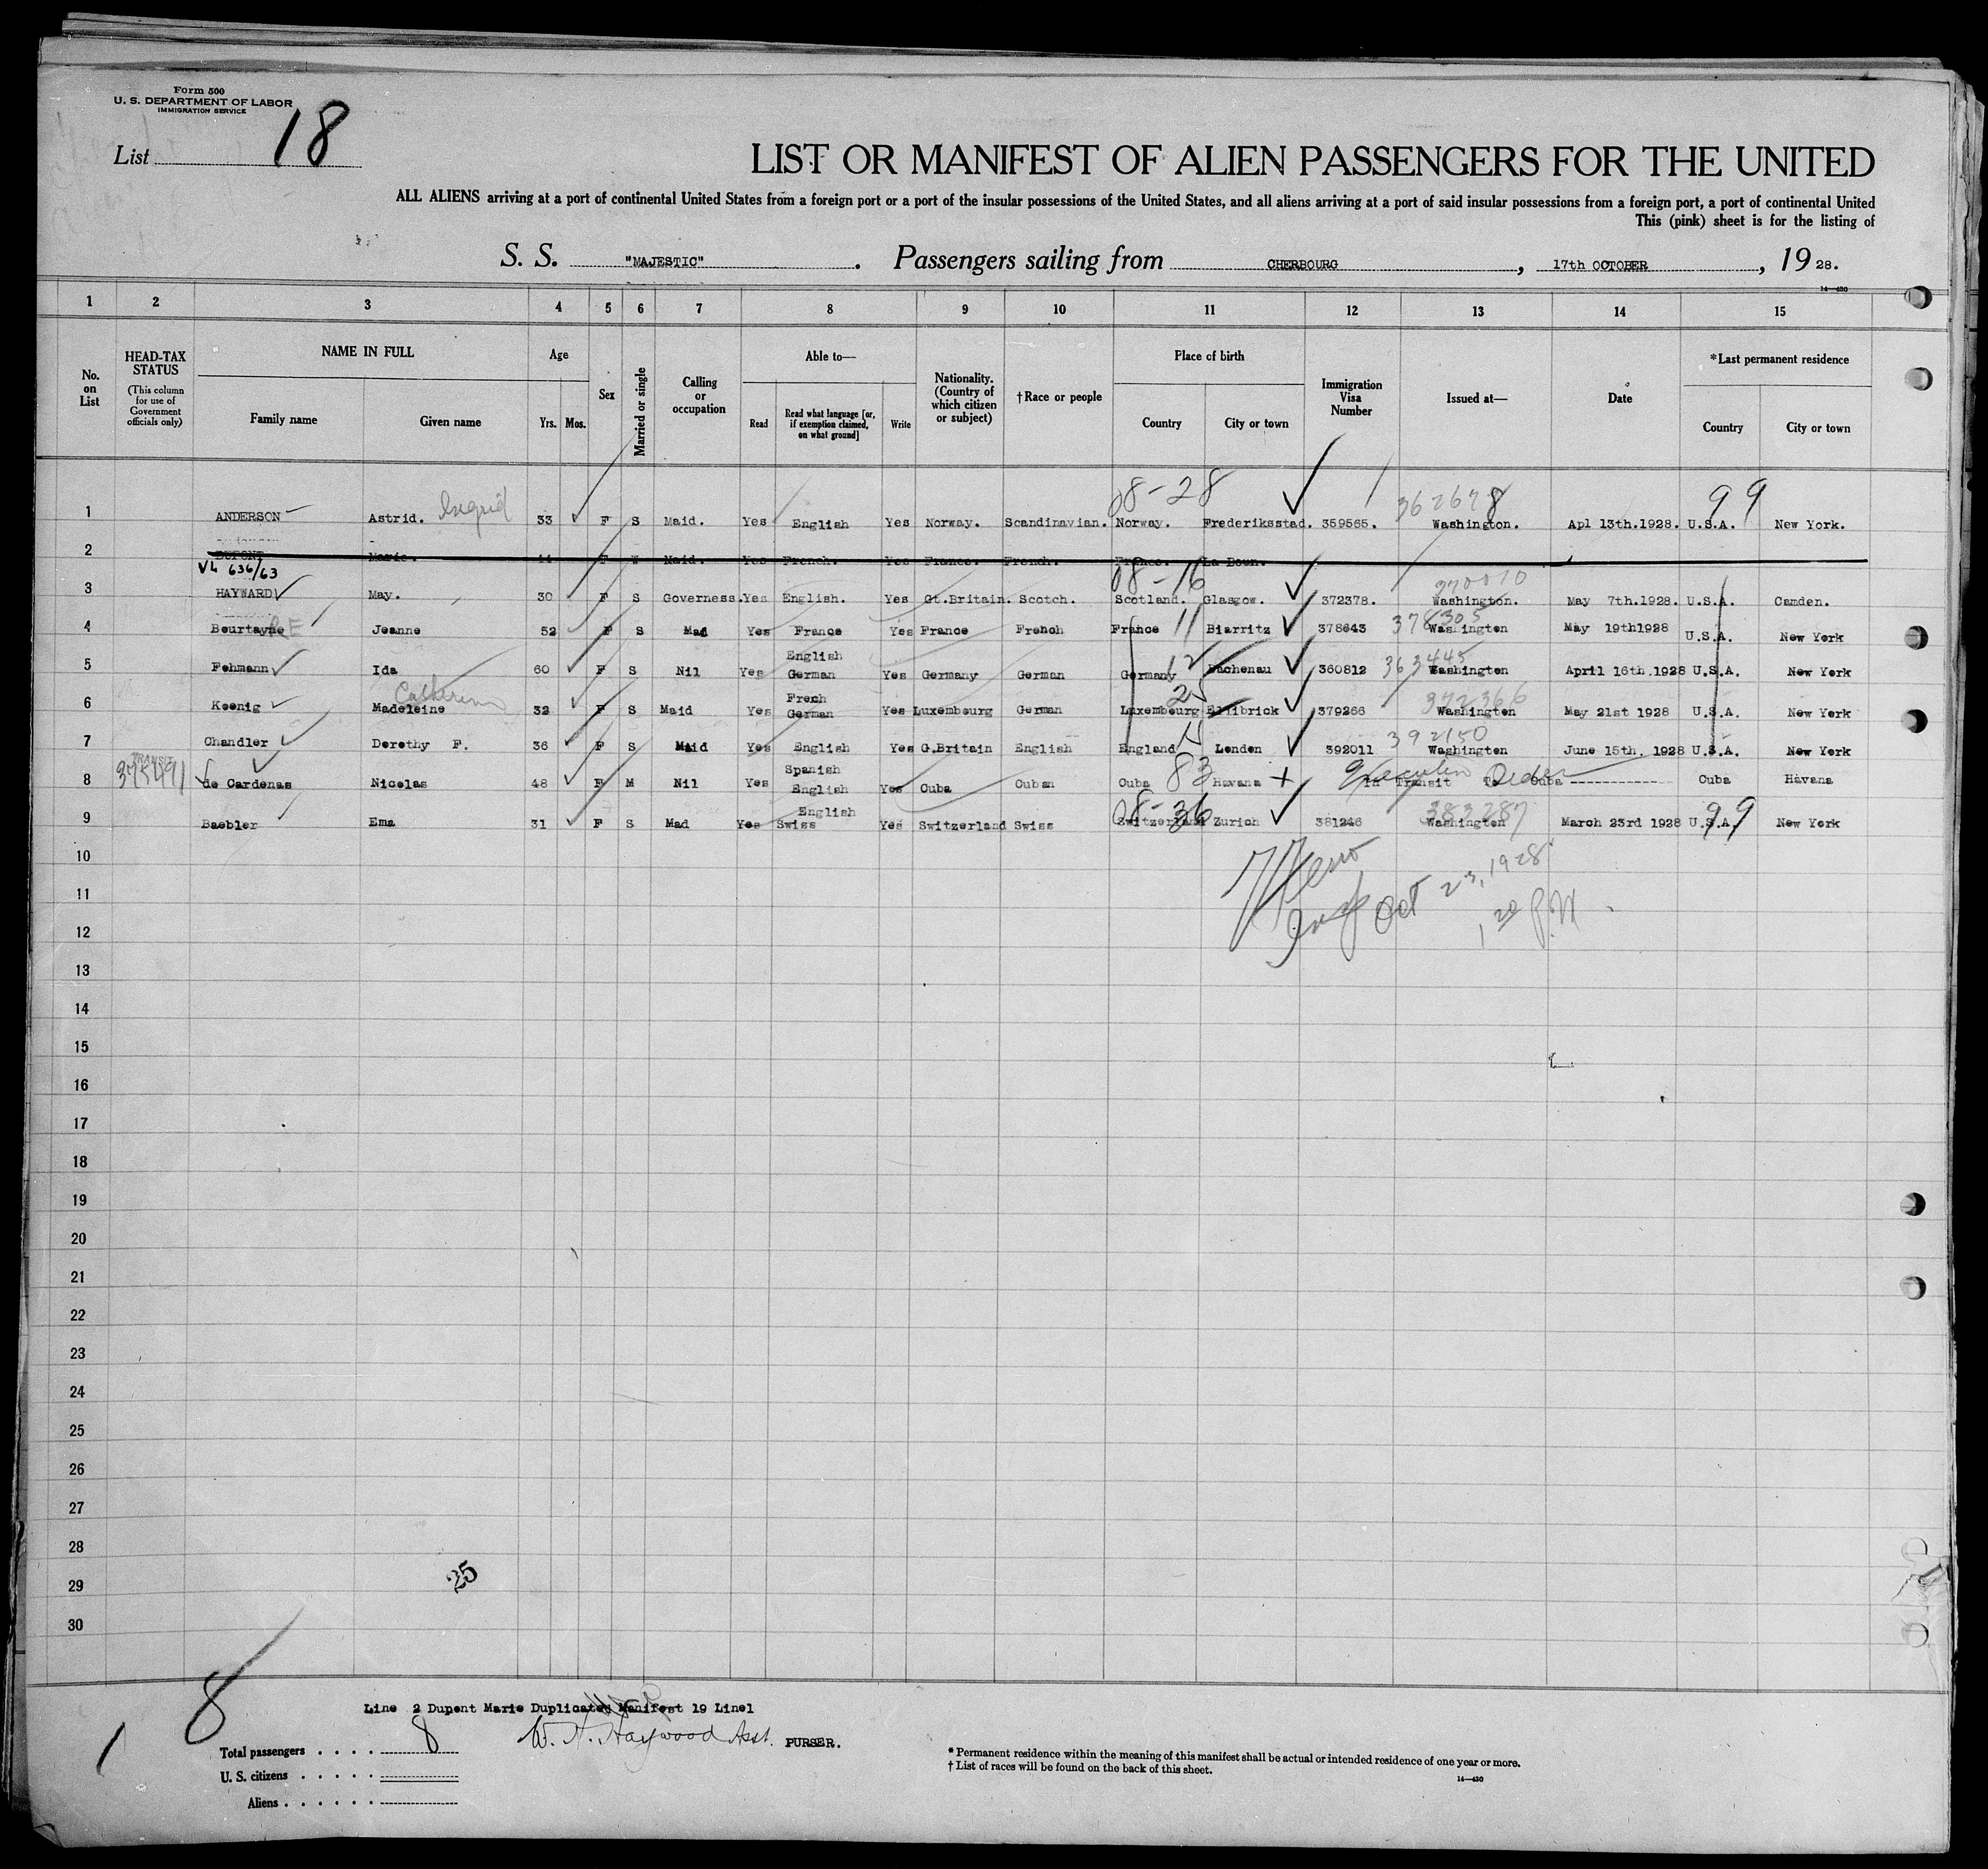 Form 500
U. S. DEPARTMENT OF LABOR
IMMIGRATION SERVICE
List 18
LIST OR MANIFEST OF ALIEN PASSENGERS FOR THE UNITED
ALL ALIENS arriving at a port of continental United States from a foreign port or a port of the insular possessions of the United States, and all aliens arriving at a port of said insular possessions from a foreign port, a port of continental United
This (pink) sheet is for the listing of
S. S. "MAJESTIC". Passengers sailing from CHERBOURG, 17th OCTOBER, 19 28.
14—430
1 2 3 4 5 6 7 8 9 10 11 12 13 14 15
No. on List
HEAD-TAX STATUS (This column for use of Government officials only)
NAME IN FULL Family name Given name
Age Yrs. Mos.
Sex
Married or single
Calling or occupation
Able to— Read Read what language [or, if exemption claimed, on what ground] Write
Nationality. (Country of which citizen or subject)
†Race or people
Place of birth Country City or town
Immigration Visa Number
Issued at—
Date
*Last permanent residence Country City or town
08-28 362678 99
1 ANDERSON Astrid. Ingrid 33 F S Maid. Yes English Yes Norway. Scandinavian. Norway. Frederiksstad. 359565. Washington. Apl 13th.1928. U.S.A. New York.
2 DUPONT Marie. F Maid. Yes French. Yes France. French. France.
VL 636/63 08-16 370070
3 HAYWARD May. 30 F S Governess. Yes English. Yes Gt.Britain. Scotch. Scotland. Glasgow. 372378. Washington. May 7th.1928. U.S.A. Camden.
4 Beurtayne RE Jeanne 52 F S Mad Yes France Yes France French France 11 Biarritz 378643 378305 Washington May 19th1928 U.S.A. New York
5 Fehmann Ida 60 F S Nil Yes English German Yes Germany German Germany 12 Bachenau 360812 363445 Washington April 16th.1928 U.S.A. New York
6 Koenig Madeleine Catherine 32 F S Maid Yes Frech German Yes Luxembourg German Luxembourg 25 Ellibrick 379266 372366 Washington May 21st 1928 U.S.A. New York
7 Chandler Dorothy F. 36 F S Maid Yes English Yes G.Britain English England 15 London 392011 392150 Washington June 15th. 1928 U.S.A. New York
8 TRANSIT 375491 de Cardenas Nicolas 48 F M Nil Yes Spanish English Yes Cuba Cuban Cuba 83 Havana + Executive Order In Transit To Cuba ------------ Cuba Havana
9 Baebler Ema 31 F S Mad Yes English Swiss Yes Switzerland Swiss Switzerland 08-36 Zurich 381246 383287 Washington March 23rd 1928 U.S.A. 99 New York
10
Insp Oct 23, 1928
11
1 20 P.M.
12
13
14
15
16
17
18
19
20
21
22
23
24
25
26
27
28
29
25
30
1 8
Line 2 Dupont Marie Duplicated Manifest 19 Line1
W. A. Haywood Asst. PURSER.
Total passengers . . . . 8
U. S. citizens . . . . .
Aliens . . . . . .
* Permanent residence within the meaning of this manifest shall be actual or intended residence of one year or more.
† List of races will be found on the back of this sheet.
14—430